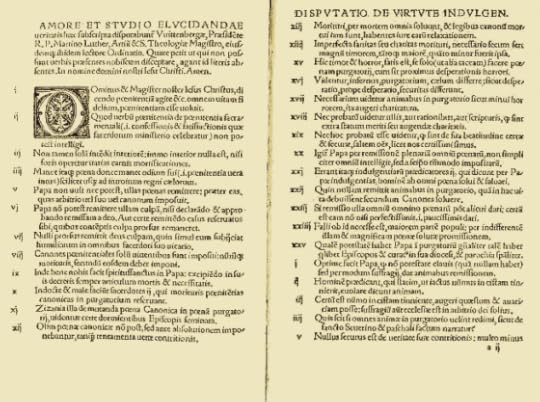 AMORE ET STVDIO ELVCIDANDAE
ueritatis hæc subscripta disputabunt̃ Vuittenbergæ, Præsidẽte
R. P. Martino Luther, Artiũ & S. Theologiæ Magistro, eius-
dem ibidem lectore Ordinario. Quare petit ut qui non pos-
sunt uerbis præsentes nobiscum disceptare, agant id literis ab-
sentes. In nomine domini nostri Iesu Christi. Amen.
i Ominus & Magister noster Iesus Christus, di-
cendo pœnitentiã agite &c. omnem uitam fi-
delium, pœnitentiam esse uoluit.
ij Quod uerbũ pœnitentia de pœnitentia sacra-
mentali (.i. confessionis & satisfactionis quæ
sacerdotum ministerio celebratur) non po-
test intelligi.
iij Non tamen solã intẽdit interiorẽ; immo interior nulla est, nisi
foris operetur uarias carnis mortificationes.
iiij Manet itaq̃ pœna donec manet odium sui, (.i. pœnitentia uera
intus) scilicet usq̃ ad introitum regni cœlorum.
v Papa non uult nec potest, ullas pœnas remittere; præter eas,
quas arbitrio uel suo uel canonum imposuit.
vj Papa nõ potest remittere ullam culpã, nisi declarãdo & appro-
bando remissam a deo. Aut certe remittẽdo casus reseruatos
sibi, quibus contẽptis culpa prorsus remaneret.
vij Nulli prorsus remittit deus culpam, quin simul eum subijciat
humiliatum in omnibus sacerdoti suo uicario.
viij Canones pœnitentiales solũ uiuentibus sunt impositi; nihilq̃
morituris, secundũ eosdem debet imponi.
ix Inde bene nobis facit spiritussanctus in Papa: excipiẽdo in su-
is decretis semper articulum mortis & necessitatis.
x Indocte & male faciũt sacerdotes ij, qui morituris pœnitẽtias
canonicas in purgatorium reseruant.
xj Zizania illa de mutanda pœna Canonica in pœnã purgato-
rij, uidentur certe dormientibus Episcopis seminata.
xij Olim pœnæ canonicæ nõ post, sed ante absolutionem impo-
nebantur, tanq̃ tentamenta ueræ contritionis.
DISPVTATIO DE VIRTVTE INDVLGEN.
xiij Morituri, per mortem omnia soluunt, & legibus canonũ mor-
tui iam sunt, habentes iure earũ relaxationem.
xiiij Imperfecta sanitas seu charitas morituri, necessario secum fert
magnũ timorem, tãtoq̃ maiorẽ, quãto minor fuerit ipsa.
xv Hic timor & horror, satis est, se solo (ut alia taceam) facere pœ-
nam purgatorij, cum sit proximus desperationis horrori.
xvj Videntur, infernus, purgatorium, cælum differre; sicut despe-
ratio, prope desperatio, securitas differunt.
xvij Necessarium uidetur animabus in purgatorio sicut minui hor-
rorem, ita augeri charitatem.
xviij Nec probatũ uidetur ullis, aut rationibus, aut scripturis, q̃ sint
extra statum meriti seu augendæ charitatis.
xix Nec hoc probatũ esse uidetur, q̃ sint de sua beatitudine certæ
& securæ, saltem oẽs, licet nos certissimi simus.
xx Igit̃ Papa per remissionẽ plenariã omniũ pœnarũ, non simplici-
ter omniũ intelligit, sed a seipso tãtummodo impositarũ.
xxj Errant itaq̃ indulgentiarũ prædicatores ij, qui dicunt per Pa-
pæ indulgentias, hominẽ ab omni pœna solui & saluari.
xxij Quin nullam remittit animabus in purgatorio, quam in hac ui-
ta debuissent secundum Canones soluere.
xxiij Si remissio ulla omniũ omnino pœnarũ põt alicui dari; certũ
est eam nõ nisi perfectissimis, .i. paucissimis dari.
xxiiij Falli ob id necesse est, maiorem partẽ populi: per indifferentẽ
illam & magnificam pœnæ solutæ promissionem.
xxv Qualẽ potestatẽ habet Papa ĩ purgatoriũ gñaliter talẽ habet
quilibet Episcopus & curat9 in sua diocesi, & parochia sp̃aliter.
i Optime facit Papa, q̃ nõ potestate clauis (quã nullam habet)
sed per modum suffragij, dat animabus remissionem.
ij Hominẽ prædicant, qui statim, ut iactus nũmus in cistam tin-
nierit, euolare dicunt animam.
iij Certũ est nũmo in cistam tinniente, augeri quæstum & auari-
ciam posse: suffragiũ aũt ecclesiæ est in arbitrio dei solius.
iiij Quis scit si omnes animæ in purgatorio uelint redimi, sicut de
sancto Seuerino & paschali factum narratur.
v Nullus securus est de ueritate suæ contritionis; multo minus
a ij